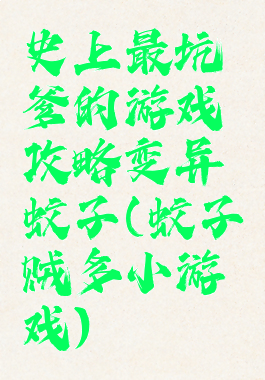 史上最坑
爹的游戏
攻略变异
蚊子(蚊子
贼多小游
戏)